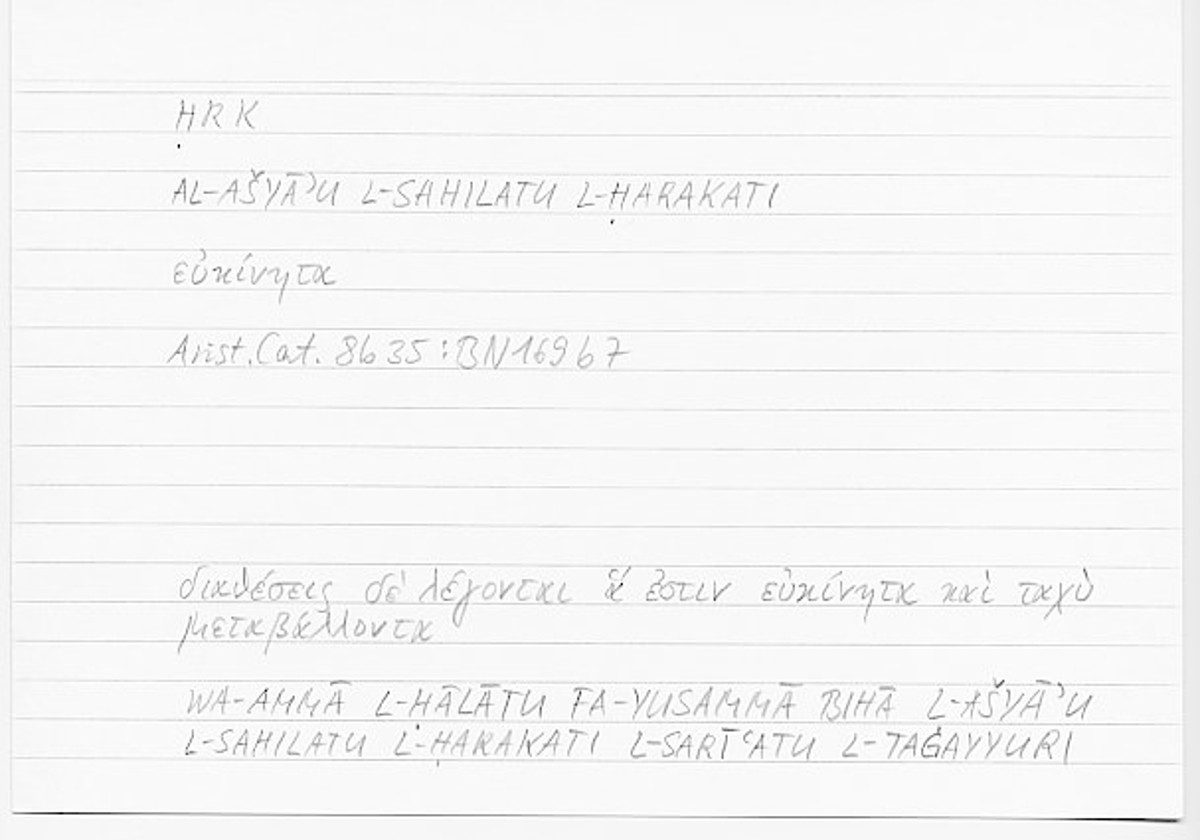 ḤRK
AL-AŠYĀʾU L-SAHILATU L-ḤARAKATI
εὐκίνητα
Arist.Cat. 8b35:BN169b7
διαθέσεις δὲ λέγονται ἅ ἐστιν εὐκίνητα καὶ ταχὺ
μεταβάλλοντα
WA-AMMĀ L-ḤĀLĀTU FA-YUSAMMĀ BIHĀ L-AŠYĀʾU
L-SAHILATU L-ḤARAKATI L-SARĪʿATU L-TAĠAYYURI